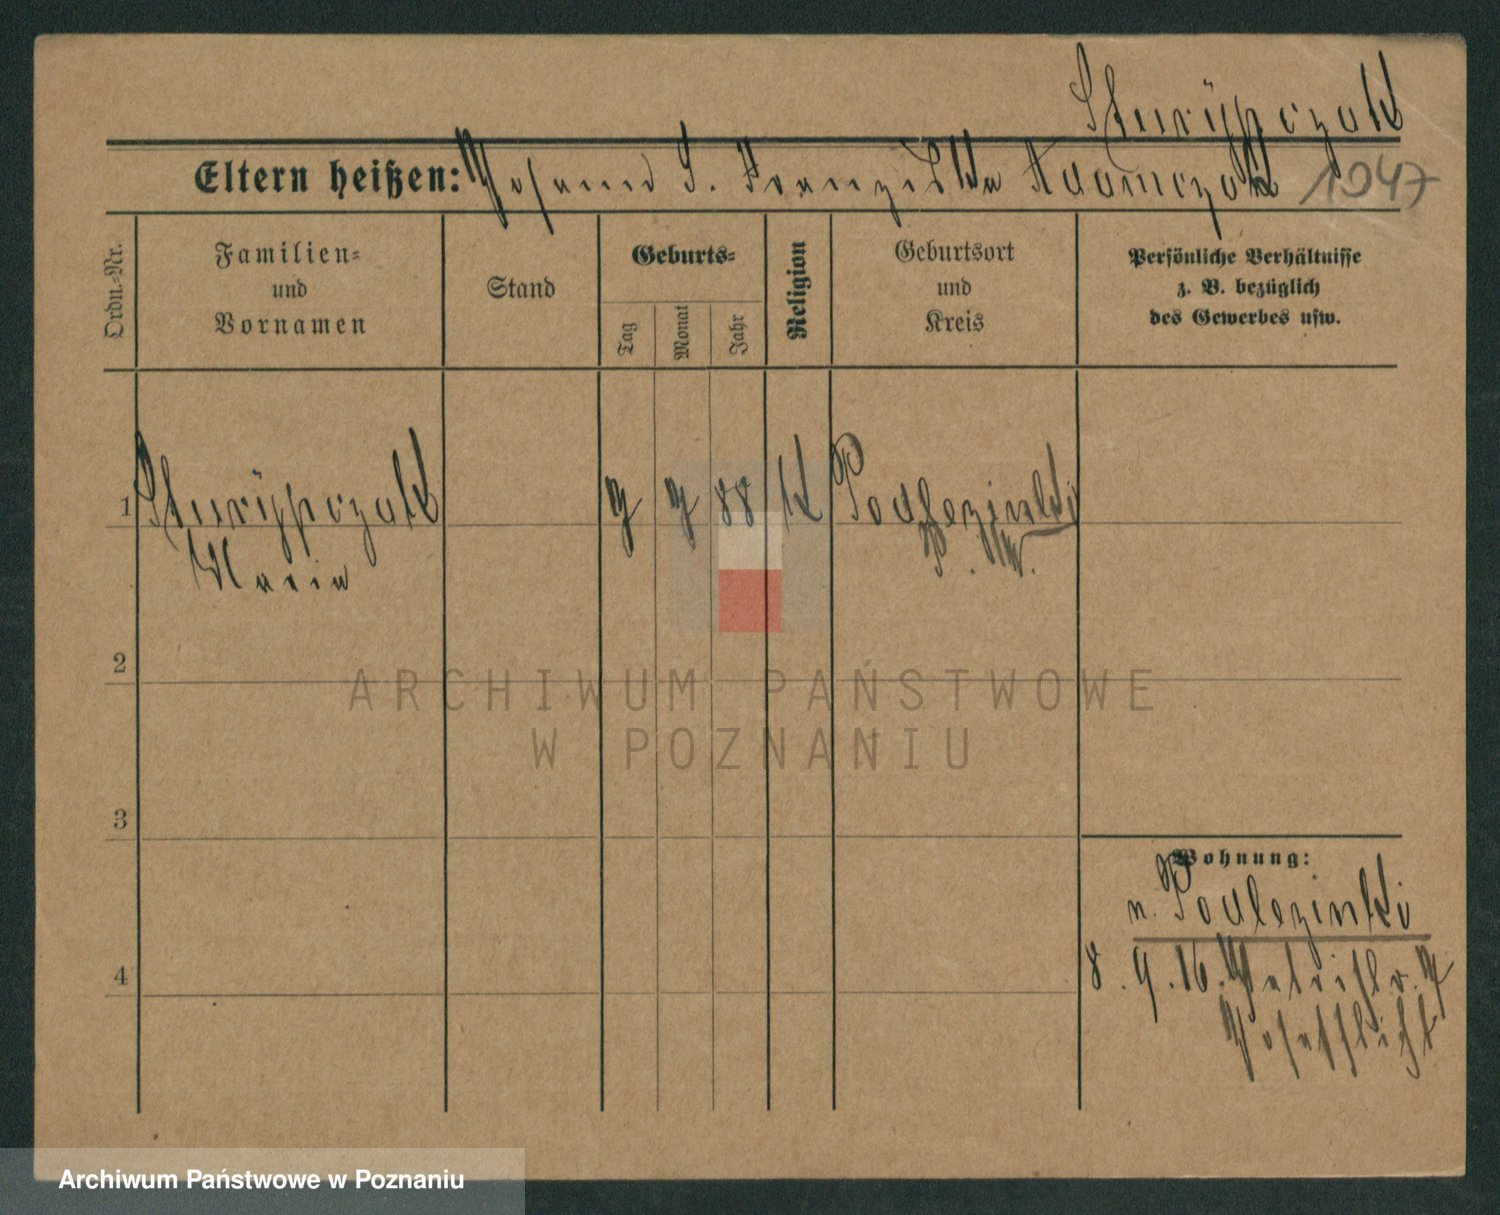 Eltern heißen: Johann u. Franziska Adamczak 1947
Ordn.-Nr.
Familien-
und
Vornamen
Stand
Geburts-
Tag
Monat
Jahr
Religion
Geburtsort
und
Kreis
Persönliche Verhältnisse
z. B. bezüglich
des Gewerbes usw.
1
7 7 88 K
Maria
P. W.
2
3
4
ARCHIWUM PAŃSTWOWE
W POZNANIU
Wohnung:
n.
8.9.16. Petristr. 7
Archiwum Państwowe w Poznaniu